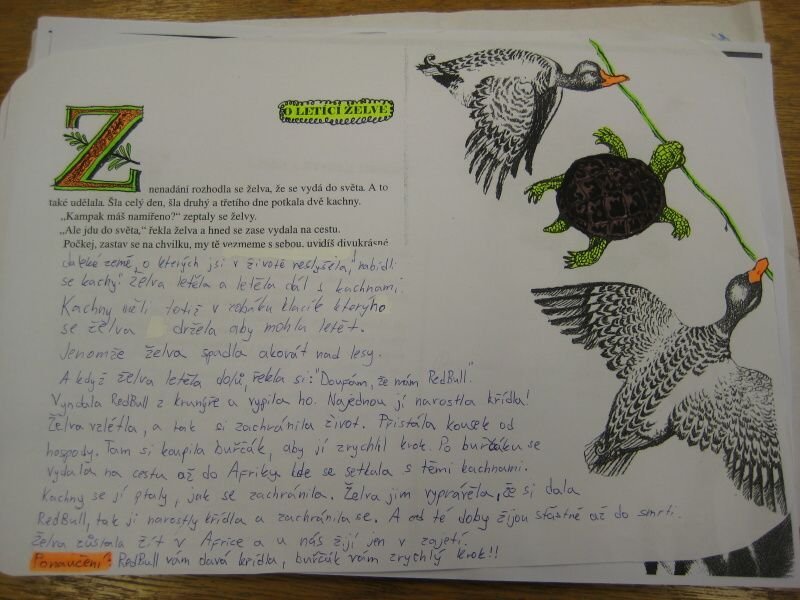 O LETÍCÍ ŽELVĚ
Z nenadání rozhodla se želva, že se vydá do světa. A to
také udělala. Šla celý den, šla druhý a třetího dne potkala dvě kachny.
„Kampak máš namířeno?“ zeptaly se želvy.
„Ale jdu do světa,“ řekla želva a hned se zase vydala na cestu.
Počkej, zastav se na chvilku, my tě vezmeme s sebou, uvidíš divukrásné
daleké země, o kterých jsi v životě neslyšela," nabídli
se kachy." Želva letěla a letěla dál s kachnami.
Kachny měli totiž v zobáku klacík kterýho
se želva držela aby mohla letět.
Jenomže želva spadla akorát nad lesy.
A když želva letěla dolů, řekla si: "Doufám, že mám RedBull".
Vyndala RedBull z krunýře a vypila ho. Najednou jí narostla křídla!
Želva vzlétla, a tak si zachránila život. Přistála kousek od
hospody. Tam si koupila burčák, aby jí zrychlil krok. Po burčáku se
vydala na cestu až do Afriky kde se setkala s těmi kachnami.
Kachny se jí ptaly, jak se zachránila. Želva jim vyprávěla, že si dala
RedBull, tak jí narostly křídla a zachránila se. A od té doby žijou šťastně až do smrti.
Želva zůstala žít v Africe a u nás žijí jen v zajetí.
Ponaučení: RedBull vám dává křídla, burčák vám zrychlý krok!!